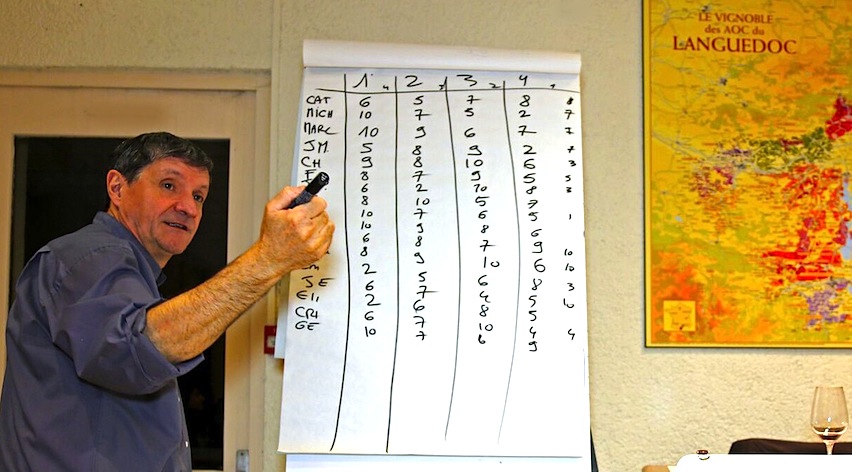 LE VIGNOBLE
des AOC du
LANGUEDOC
1 4 2 3 3 2 4 1
CAT 6 5 7 8 8
MICH 10 7 5 2 7
MARC 10 9 6 7 7
JM 5 8 9 2 7
CH 9 8 10 6 3
8 7 9 5 5
6 2 10 8 3
8 10 5 7
10 7 6 5 1
10 9 8 6
6 8 7 9 10
8 9 10 6 10
2 5 6 8 3
JE 6 7 4 5
EII 2 6 8 5
CRI 6 7 10 4 4
GE 10 7 6 9